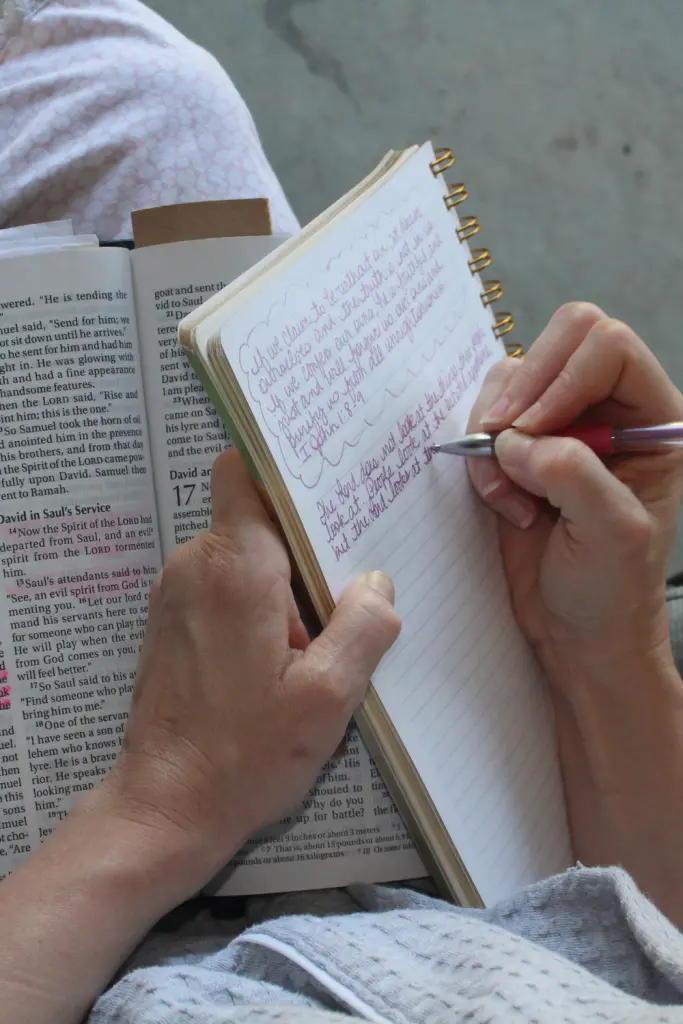 wered. "He is tending the
uel said, "Send for him; we
ot sit down until he arrives."
o he sent for him and had him
ght in. He was glowing with
th and had a fine appearance
handsome features.
hen the LORD said, "Rise and
int him; this is the one."
So Samuel took the horn of oil
anointed him in the presence
his brothers, and from that day
the Spirit of the LORD came pow-
fully upon David. Samuel then
ent to Ramah.
David in Saul's Service
14 Now the Spirit of the LORD had
departed from Saul, and an evil
spirit from the LORD tormented
him.
15 Saul's attendants said to him,
"See, an evil spirit from God is
menting you. 16 Let our lord
mand his servants here to se
for someone who can play the
He will play when the evil
from God comes on you,
will feel better."
17 So Saul said to his a
"Find someone who play
bring him to me."
18 One of the servan
"I have seen a son of
lehem who knows h
lyre. He is a brave
rior. He speaks
looking man.
him."
19 Th
Jes
goat and sent th
vid to Saul
David t
I am please
23 When
came on Sa
his lyre and
come to Saul
David an
17
assemb
pitched
His
of him.
shouted to
Why do you
e up for battle?
9 inches or about 3 meters
That is, about 15 pounds or about 6.9
pounds or about 16 kilograms
If we claim to be without sin, we deceive
ourselves and the truth is not in us.
If we confess our sins, he is faithful and
just and will forgive us our sins and
purify us from all unrighteousness.
I John 1:8-9
The Lord does not look at the things man
look at. People look at the outward
but the Lord looks at t